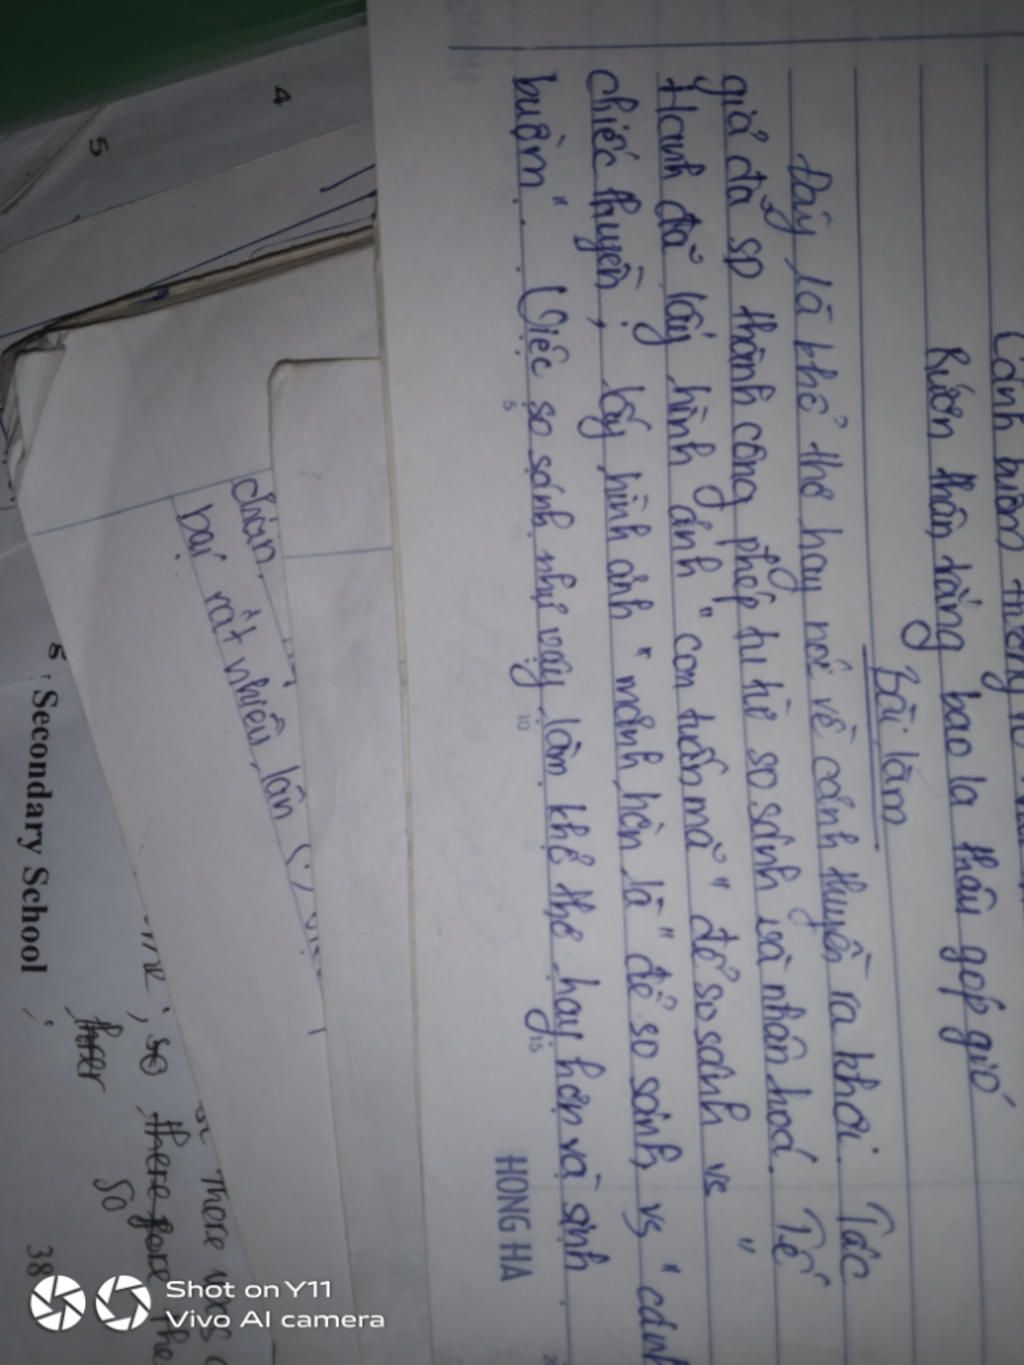 Cánh buồm
Rướn thân trắng bao la thâu góp gió
Bài làm
Đây là khổ thơ hay nói về cảnh thuyền ra khơi. Tác
giả đã sd thành công phép tu từ so sánh và nhân hoá. Tế
Hanh đã lấy hình ảnh "con tuấn mã" để so sánh vs "
chiếc thuyền, lấy hình ảnh "mảnh hồn là" để so sánh vs "cánh
buồm". Việc so sánh như vậy làm khổ thơ hay hơn và sinh
5 10 15
HONG HA
chán.
bại rất nhiều lần
4
5
8 Secondary School ;
38
; so there fore the
three
so
There was
Shot on Y11
Vivo AI camera